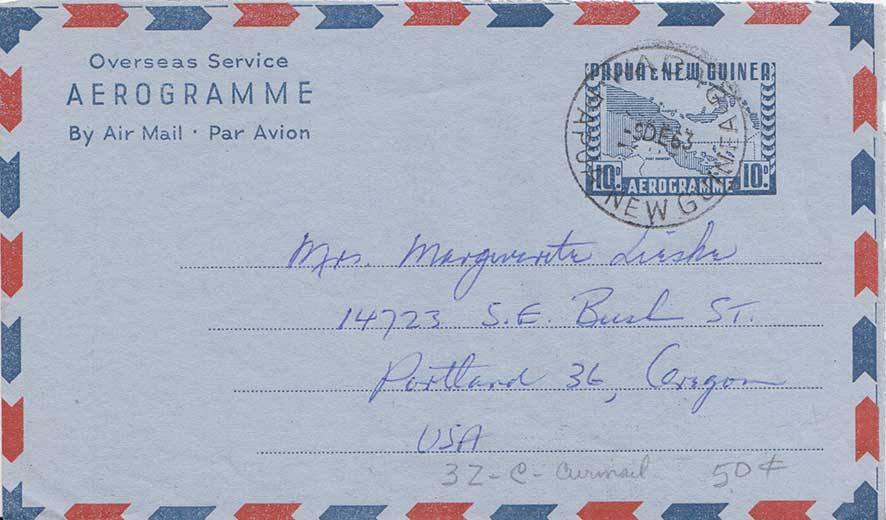 Overseas Service
AEROGRAMME
By Air Mail · Par Avion
PAPUA & NEW GUINEA
10D AEROGRAMME 10D
-9DE63
PAPUA NEW GUINEA
Mrs. Marguerite Lieske
14723 S.E. Bush St.
Portland 36, Oregon
USA
3Z-C- 50¢